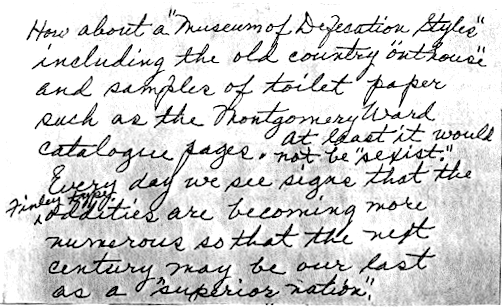 How about a "Museum of Defecation Styles"
including the old country "outhouse"
and samples of toilet paper
such as the Montgomery Ward
catalogue pages. At least it would
not be "sexist."
Every day we see signs that the
Finley oddities are becoming more
numerous so that the next
century may be our last
as a "superior nation".